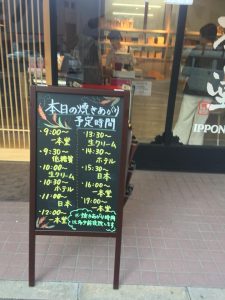 本日の焼きあがり
予定時間
・9:00〜
一本堂
・9:30〜
低糖質
・10:00〜
生クリーム
・10:30〜
ホテル
・11:00〜
日本
・12:00〜
一本堂
・13:30〜
生クリーム
・14:30〜
ホテル
・15:30〜
日本
・16:00〜
一本堂
・17:00〜
一本堂
※焼きあがり時間
は多少前後致します
堂
IPPON